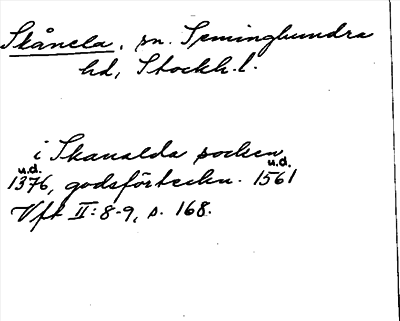 Skånela, sn. Seminghundra
hd, Stockh.l.
i Skanalda socken
u.d. u.d.
1376, godsförteckn. 1561
Vft II:8-9, s. 168.